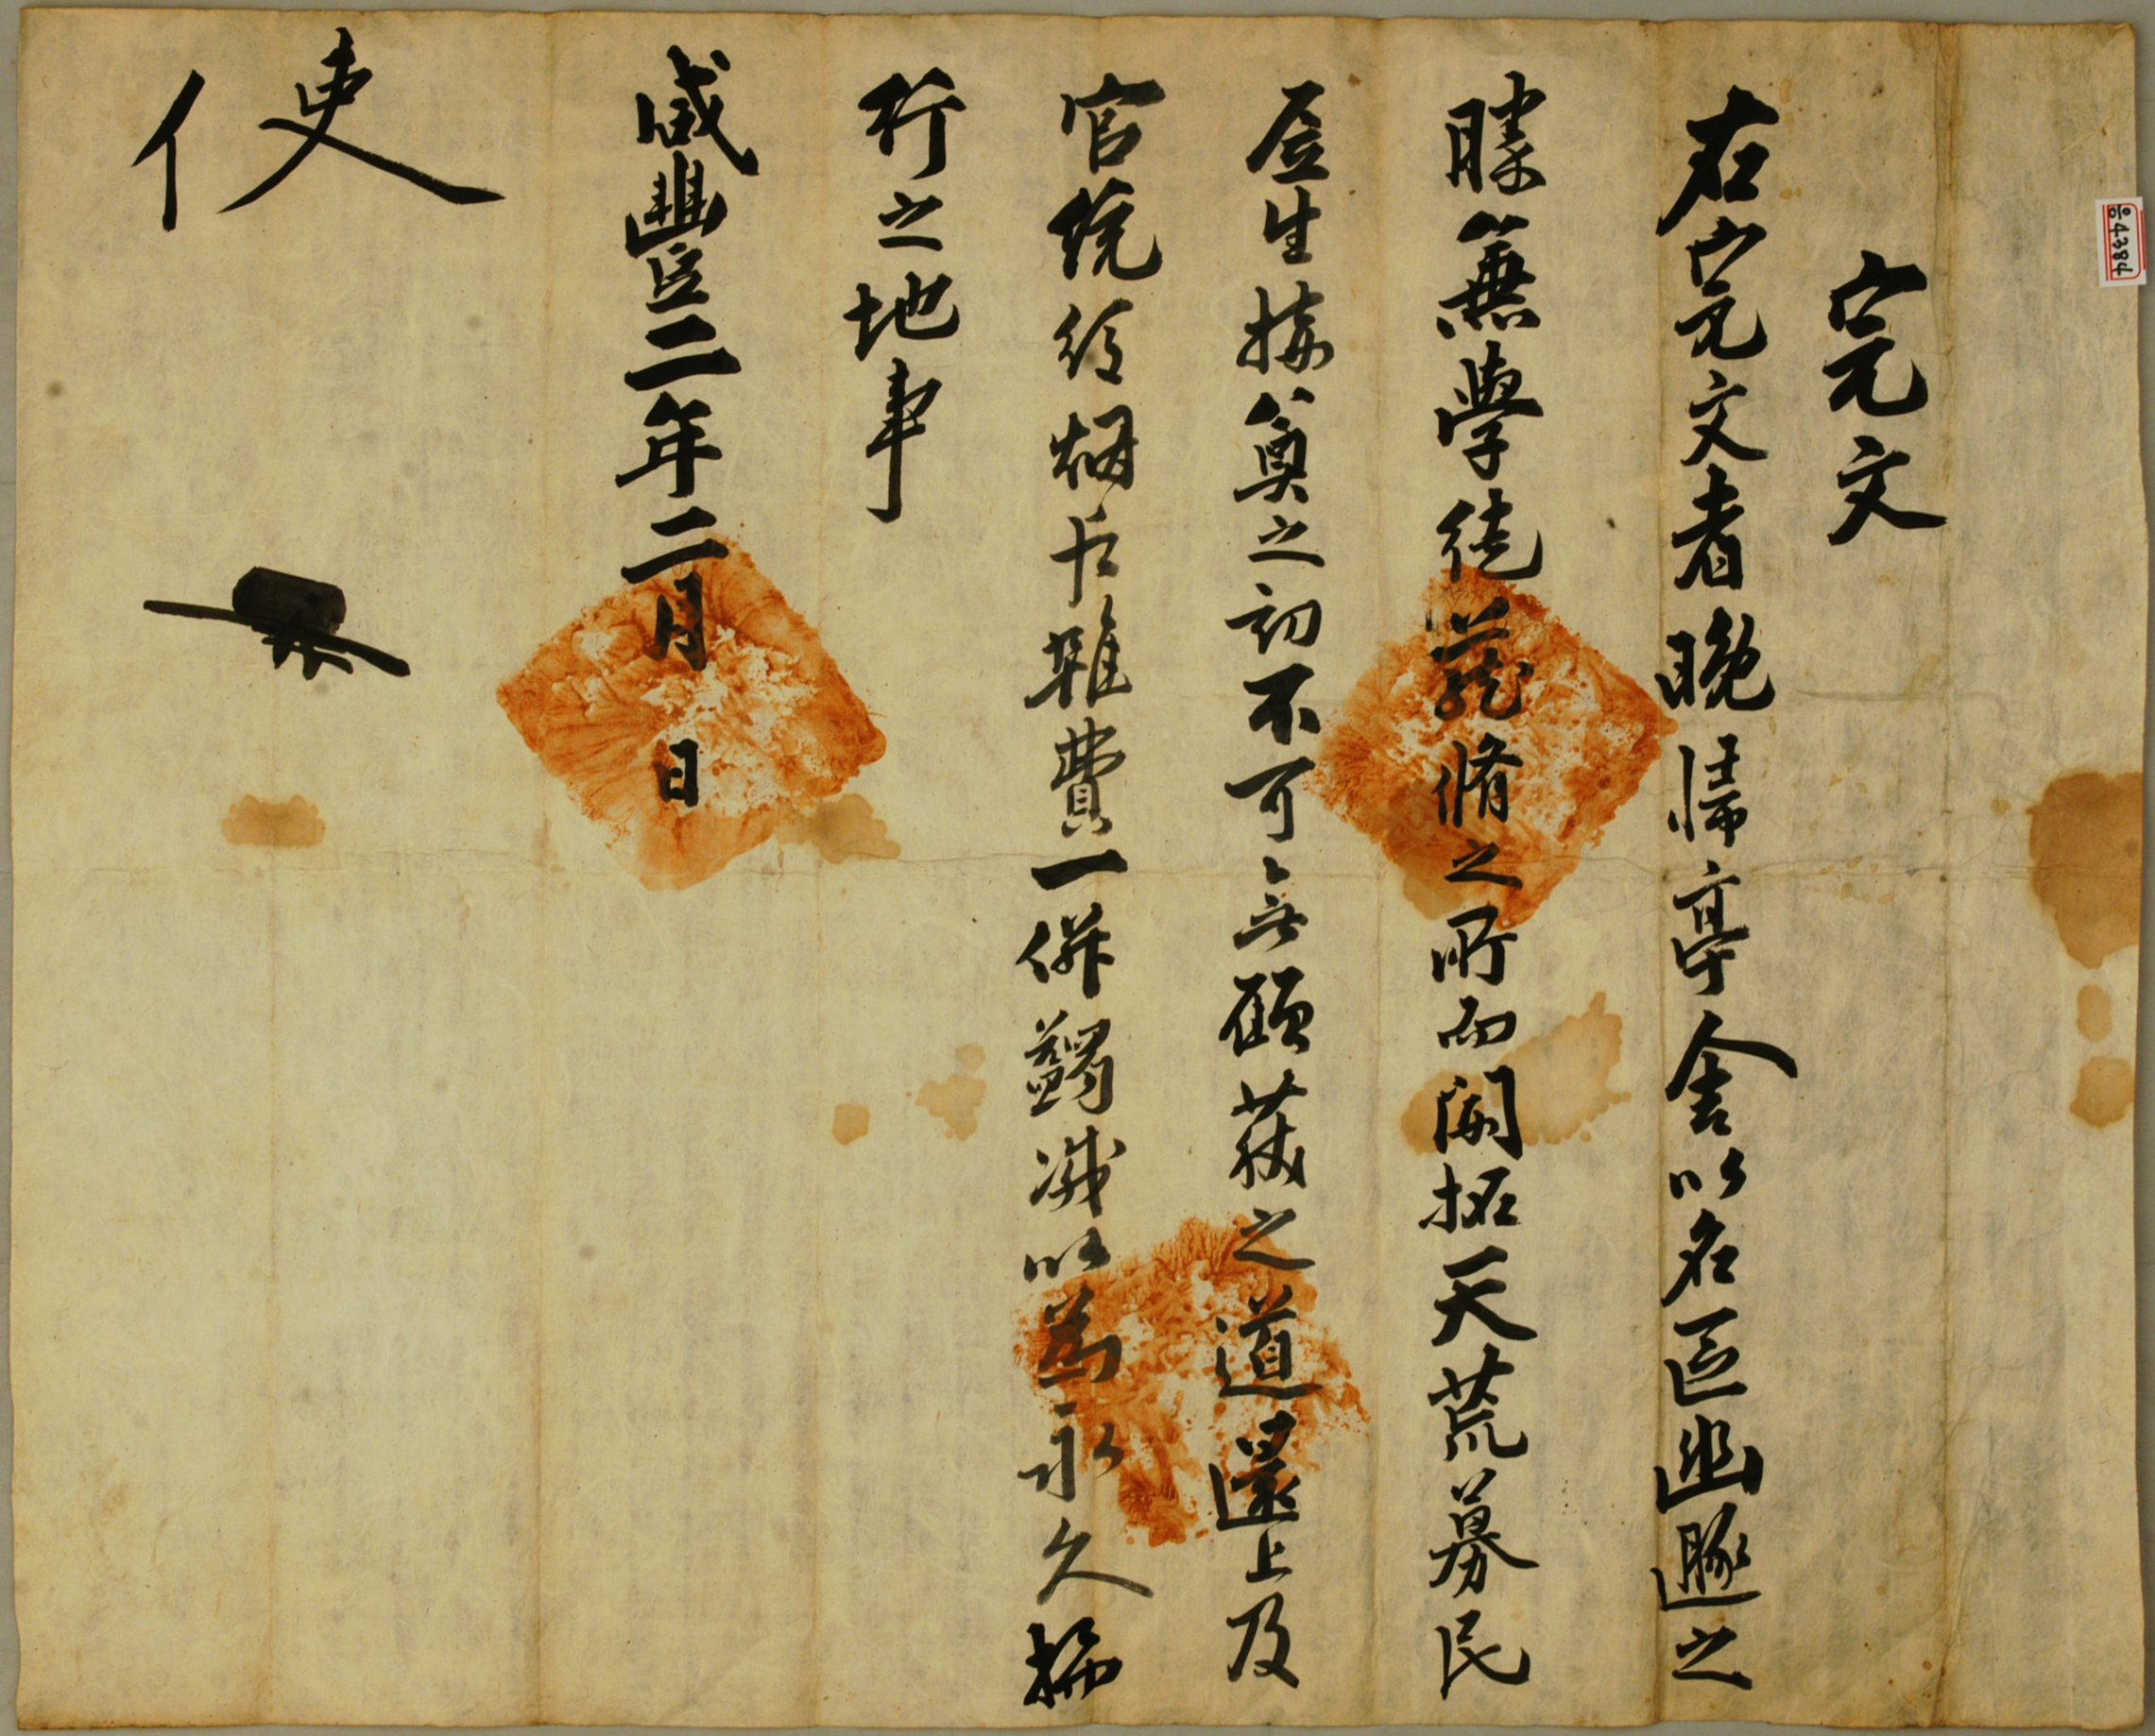 完文
右完文者晩歸亭舍以名區幽邃之
勝兼學徒藏脩之所而開拓天荒募民
居生接奠之初不可無顧護之道還上及
官統烟戶雜費一併蠲减以爲永久
行之地事
咸豐二年二月 日
使
4384